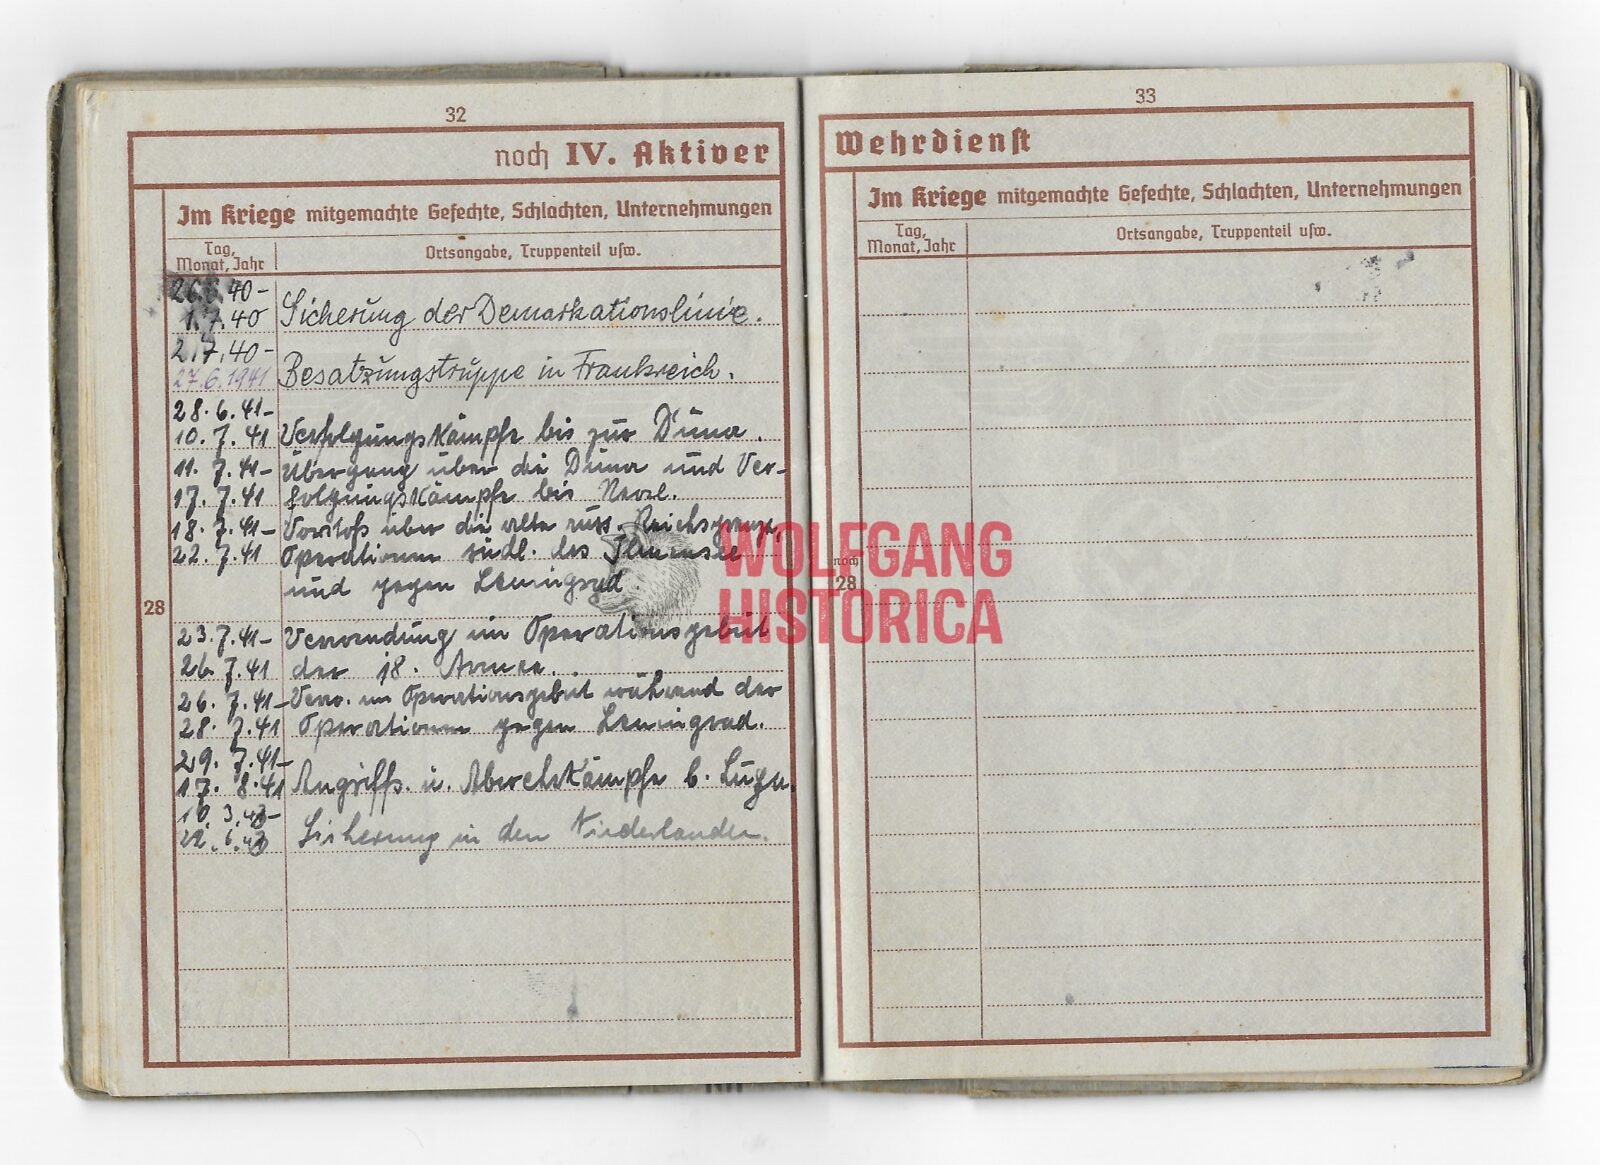 32
noch IV. Aktiver
Im Kriege mitgemachte Gefechte, Schlachten, Unternehmungen
Tag, Monat, Jahr
Ortsangabe, Truppenteil usw.
26.6.40-
1.7.40 Sicherung der Demarkationslinie.
2.7.40-
27.6.1941 Besatzungstruppe in Frankreich.
28.6.41-
10.7.41 Verfolgungskämpfe bis zur Düna.
11.7.41- Übergang über die Düna und Ver-
17.7.41 folgungskämpfe bis
18.7.41- Vorstoß über die alte russ. Reichsgrenze,
22.7.41 Operationen südl. des Ilmensee
und gegen Leningrad
28
23.7.41- Verwendung im Operationsgebiet
26.7.41 der 18. Armee.
26.7.41- Verw. im Operationsgebiet während der
28.7.41 Operationen gegen Leningrad.
29.7.41-
17.8.41 Angriffs. u. Abwehrkämpfe b. Luga.
10.3.43-
22.6.43 Sicherung in den Niederlanden.
33
Wehrdienst
Im Kriege mitgemachte Gefechte, Schlachten, Unternehmungen
Tag, Monat, Jahr
Ortsangabe, Truppenteil usw.
noch
28
WOLFGANG
HISTORICA